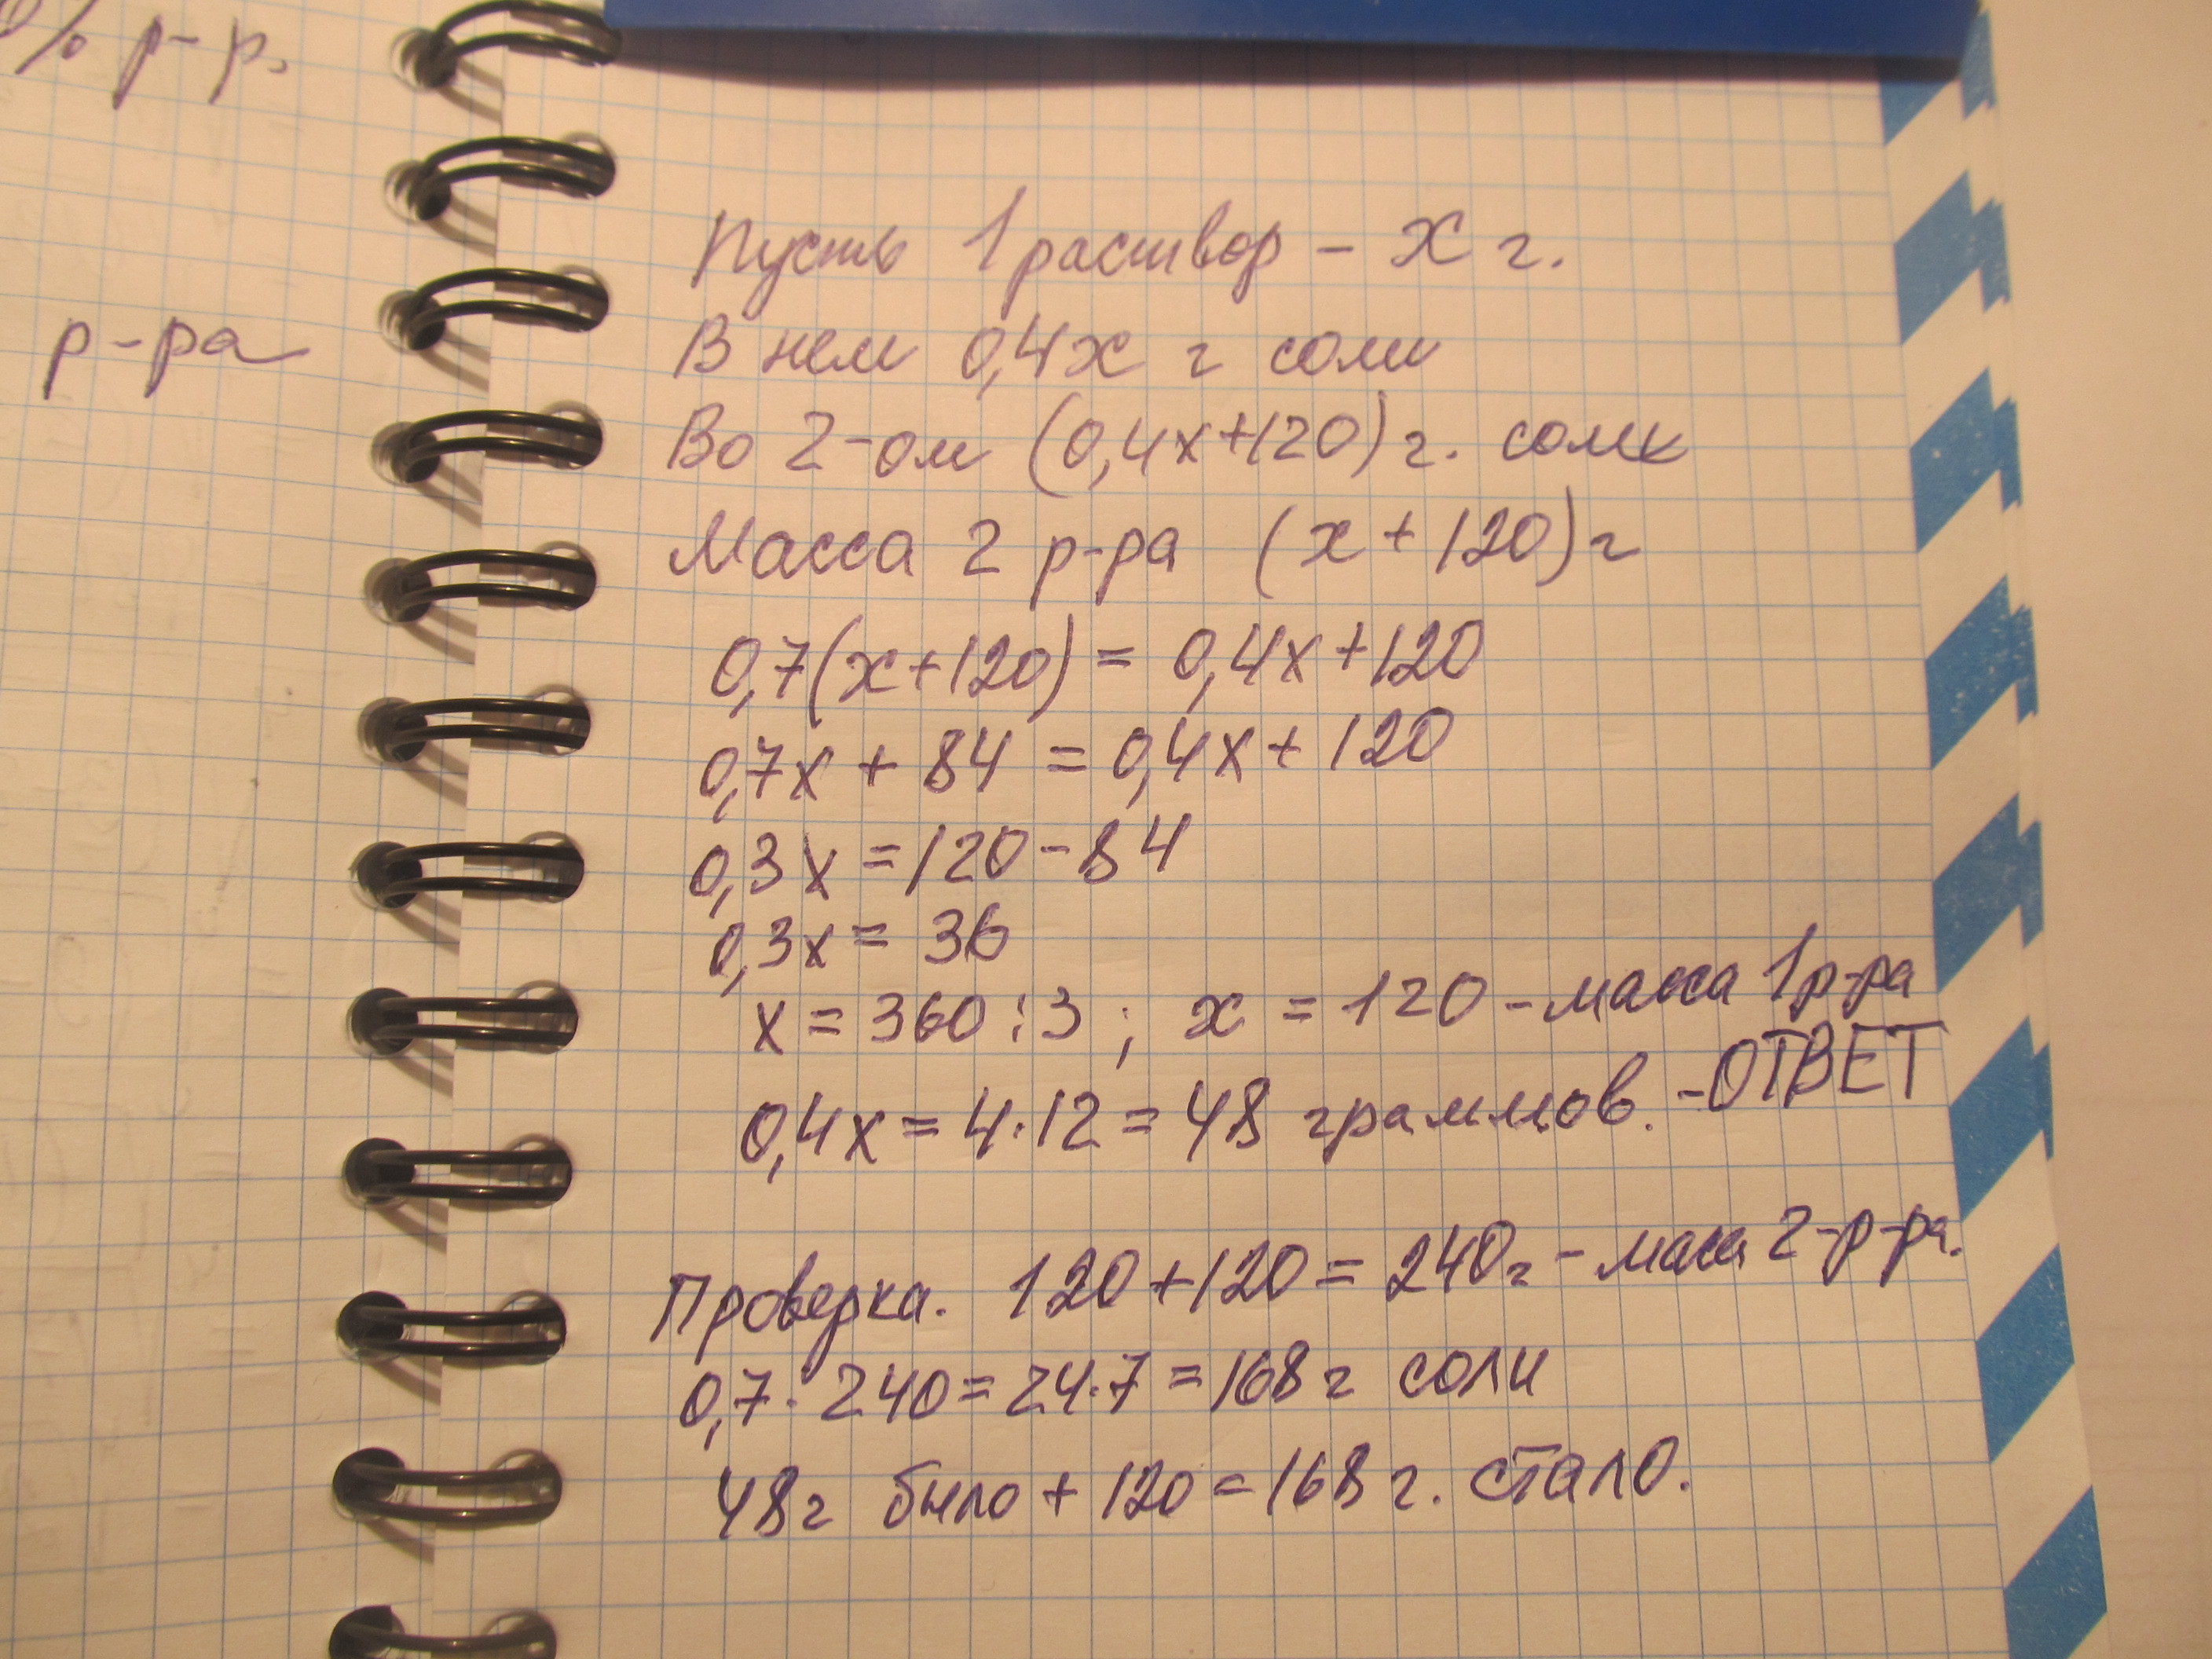 % р-р.
р-ра
Пусть 1 раствор - x г.
В нем 0,4x г соли
Во 2-ом (0,4x+120) г. соли
Масса 2 р-ра (x+120) г
0,7(x+120) = 0,4x+120
0,7x + 84 = 0,4x + 120
0,3x = 120-84
0,3x = 36
x = 360:3; x = 120 - масса 1 р-ра
0,4x = 4·12 = 48 граммов. - ОТВЕТ
Проверка. 120+120 = 240г - масса 2-р-ра.
0,7·240 = 24·7 = 168 г соли
48г было + 120 = 168 г. стало.